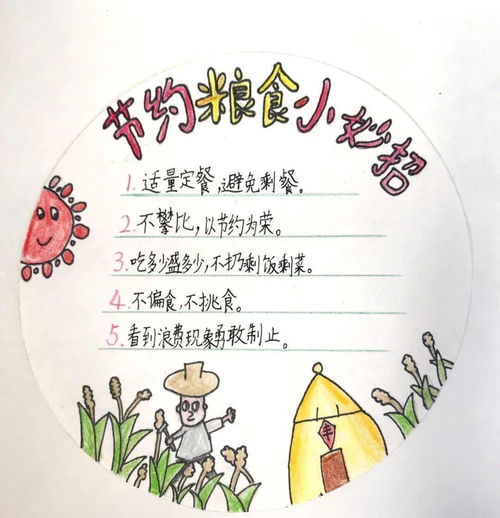 节约粮食小妙招
1. 适量定餐,避免剩餐。
2. 不攀比,以节约为荣。
3. 吃多少盛多少,不扔剩饭剩菜。
4. 不偏食,不挑食。
5. 看到浪费现象勇敢制止。
丰